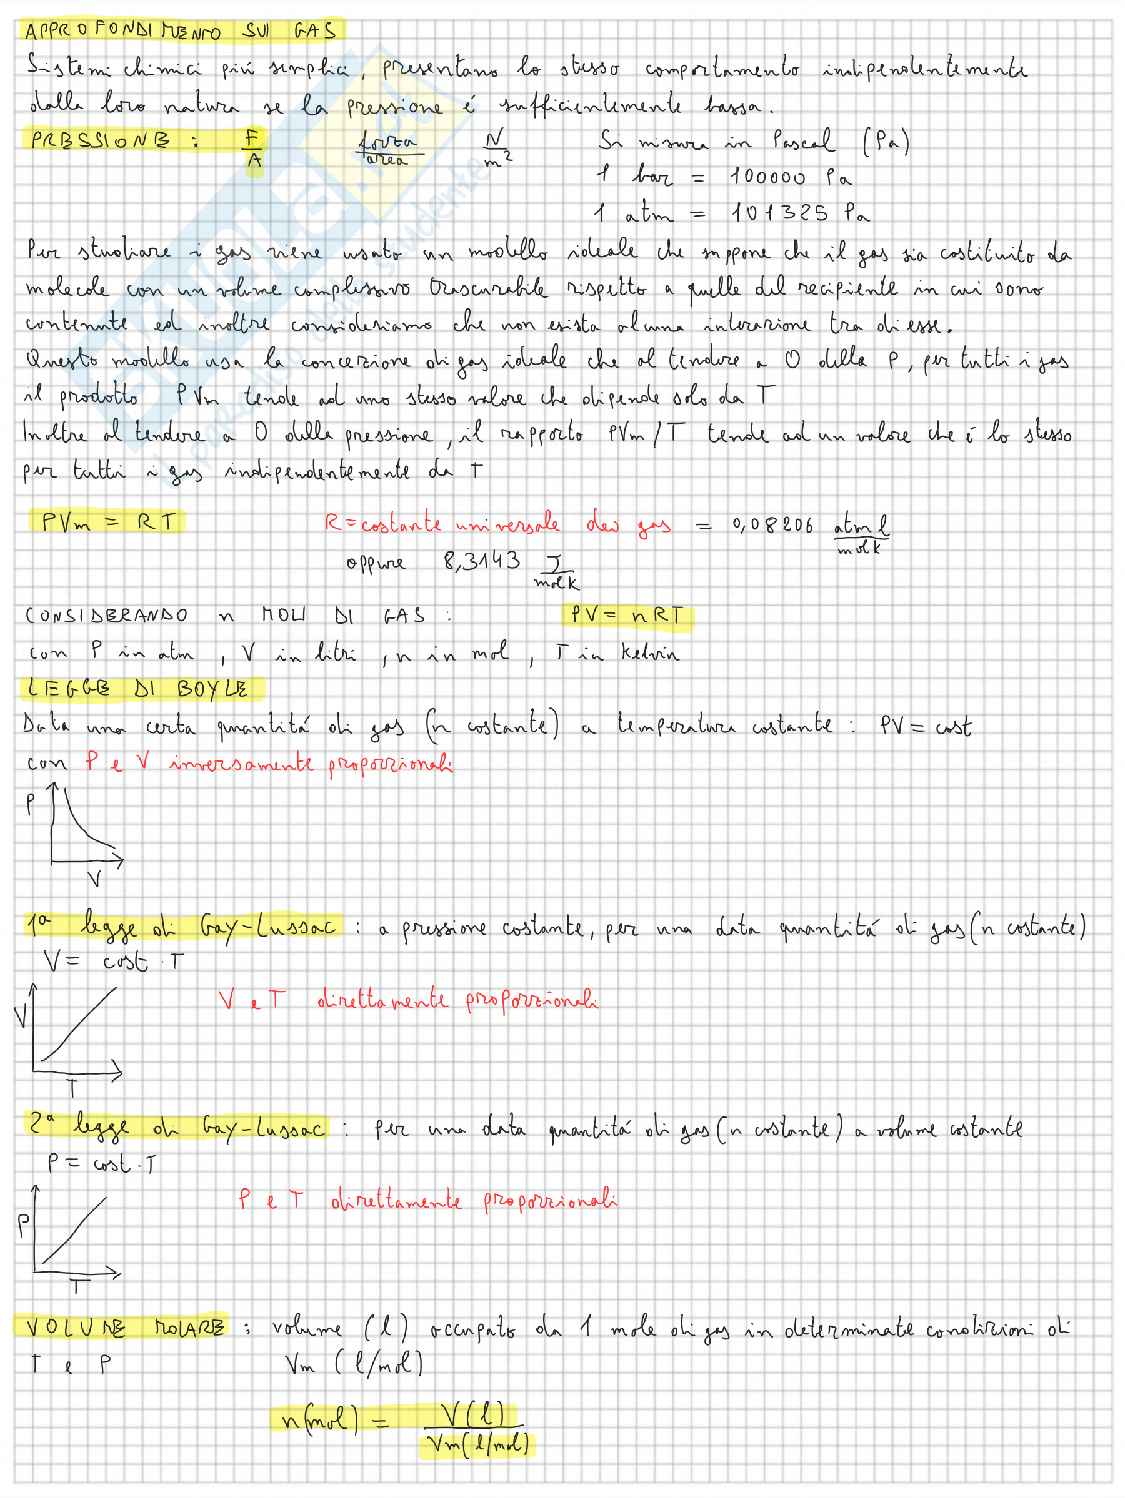 APPROFONDIMENTO SUI GAS
Sistemi chimici più semplici, presentano lo stesso comportamento indipendentemente
dalla loro natura se la pressione é sufficientemente bassa.
PRESSIONE : F/A forza/area N/m² Si misura in Pascal (Pa)
1 bar = 100000 Pa
1 atm = 101325 Pa
Per studiare i gas viene usato un modello ideale che suppone che il gas sia costituito da
molecole con un volume complessivo trascurabile rispetto a quello del recipiente in cui sono
contenute ed inoltre consideriamo che non esista alcuna interazione tra di esse.
Questo modello usa la concezione di gas ideale che al tendere a 0 della P, per tutti i gas
il prodotto PVm tende ad uno stesso valore che dipende solo da T
Inoltre al tendere a 0 della pressione, il rapporto PVm/T tende ad un valore che é lo stesso
per tutti i gas indipendentemente da T
PVm = RT R = costante universale dei gas = 0,08206 atm l/mol K
oppure 8,3143 J/mol K
CONSIDERANDO n MOLI DI GAS : PV = nRT
con P in atm , V in litri , n in mol , T in Kelvin
LEGGE DI BOYLE
Data una certa quantitá di gas (n costante) a temperatura costante : PV = cost
con P e V inversamente proporzionali
P
V
1ª legge di Gay-Lussac : a pressione costante, per una data quantitá di gas (n costante)
V = cost · T
V e T direttamente proporzionali
V
T
2ª legge di Gay-Lussac : per una data quantitá di gas (n costante) a volume costante
P = cost · T
P e T direttamente proporzionali
P
T
VOLUME MOLARE : volume (l) occupato da 1 mole di gas in determinate condizioni di
T e P Vm (l/mol)
n(mol) = V(l)/Vm(l/mol)